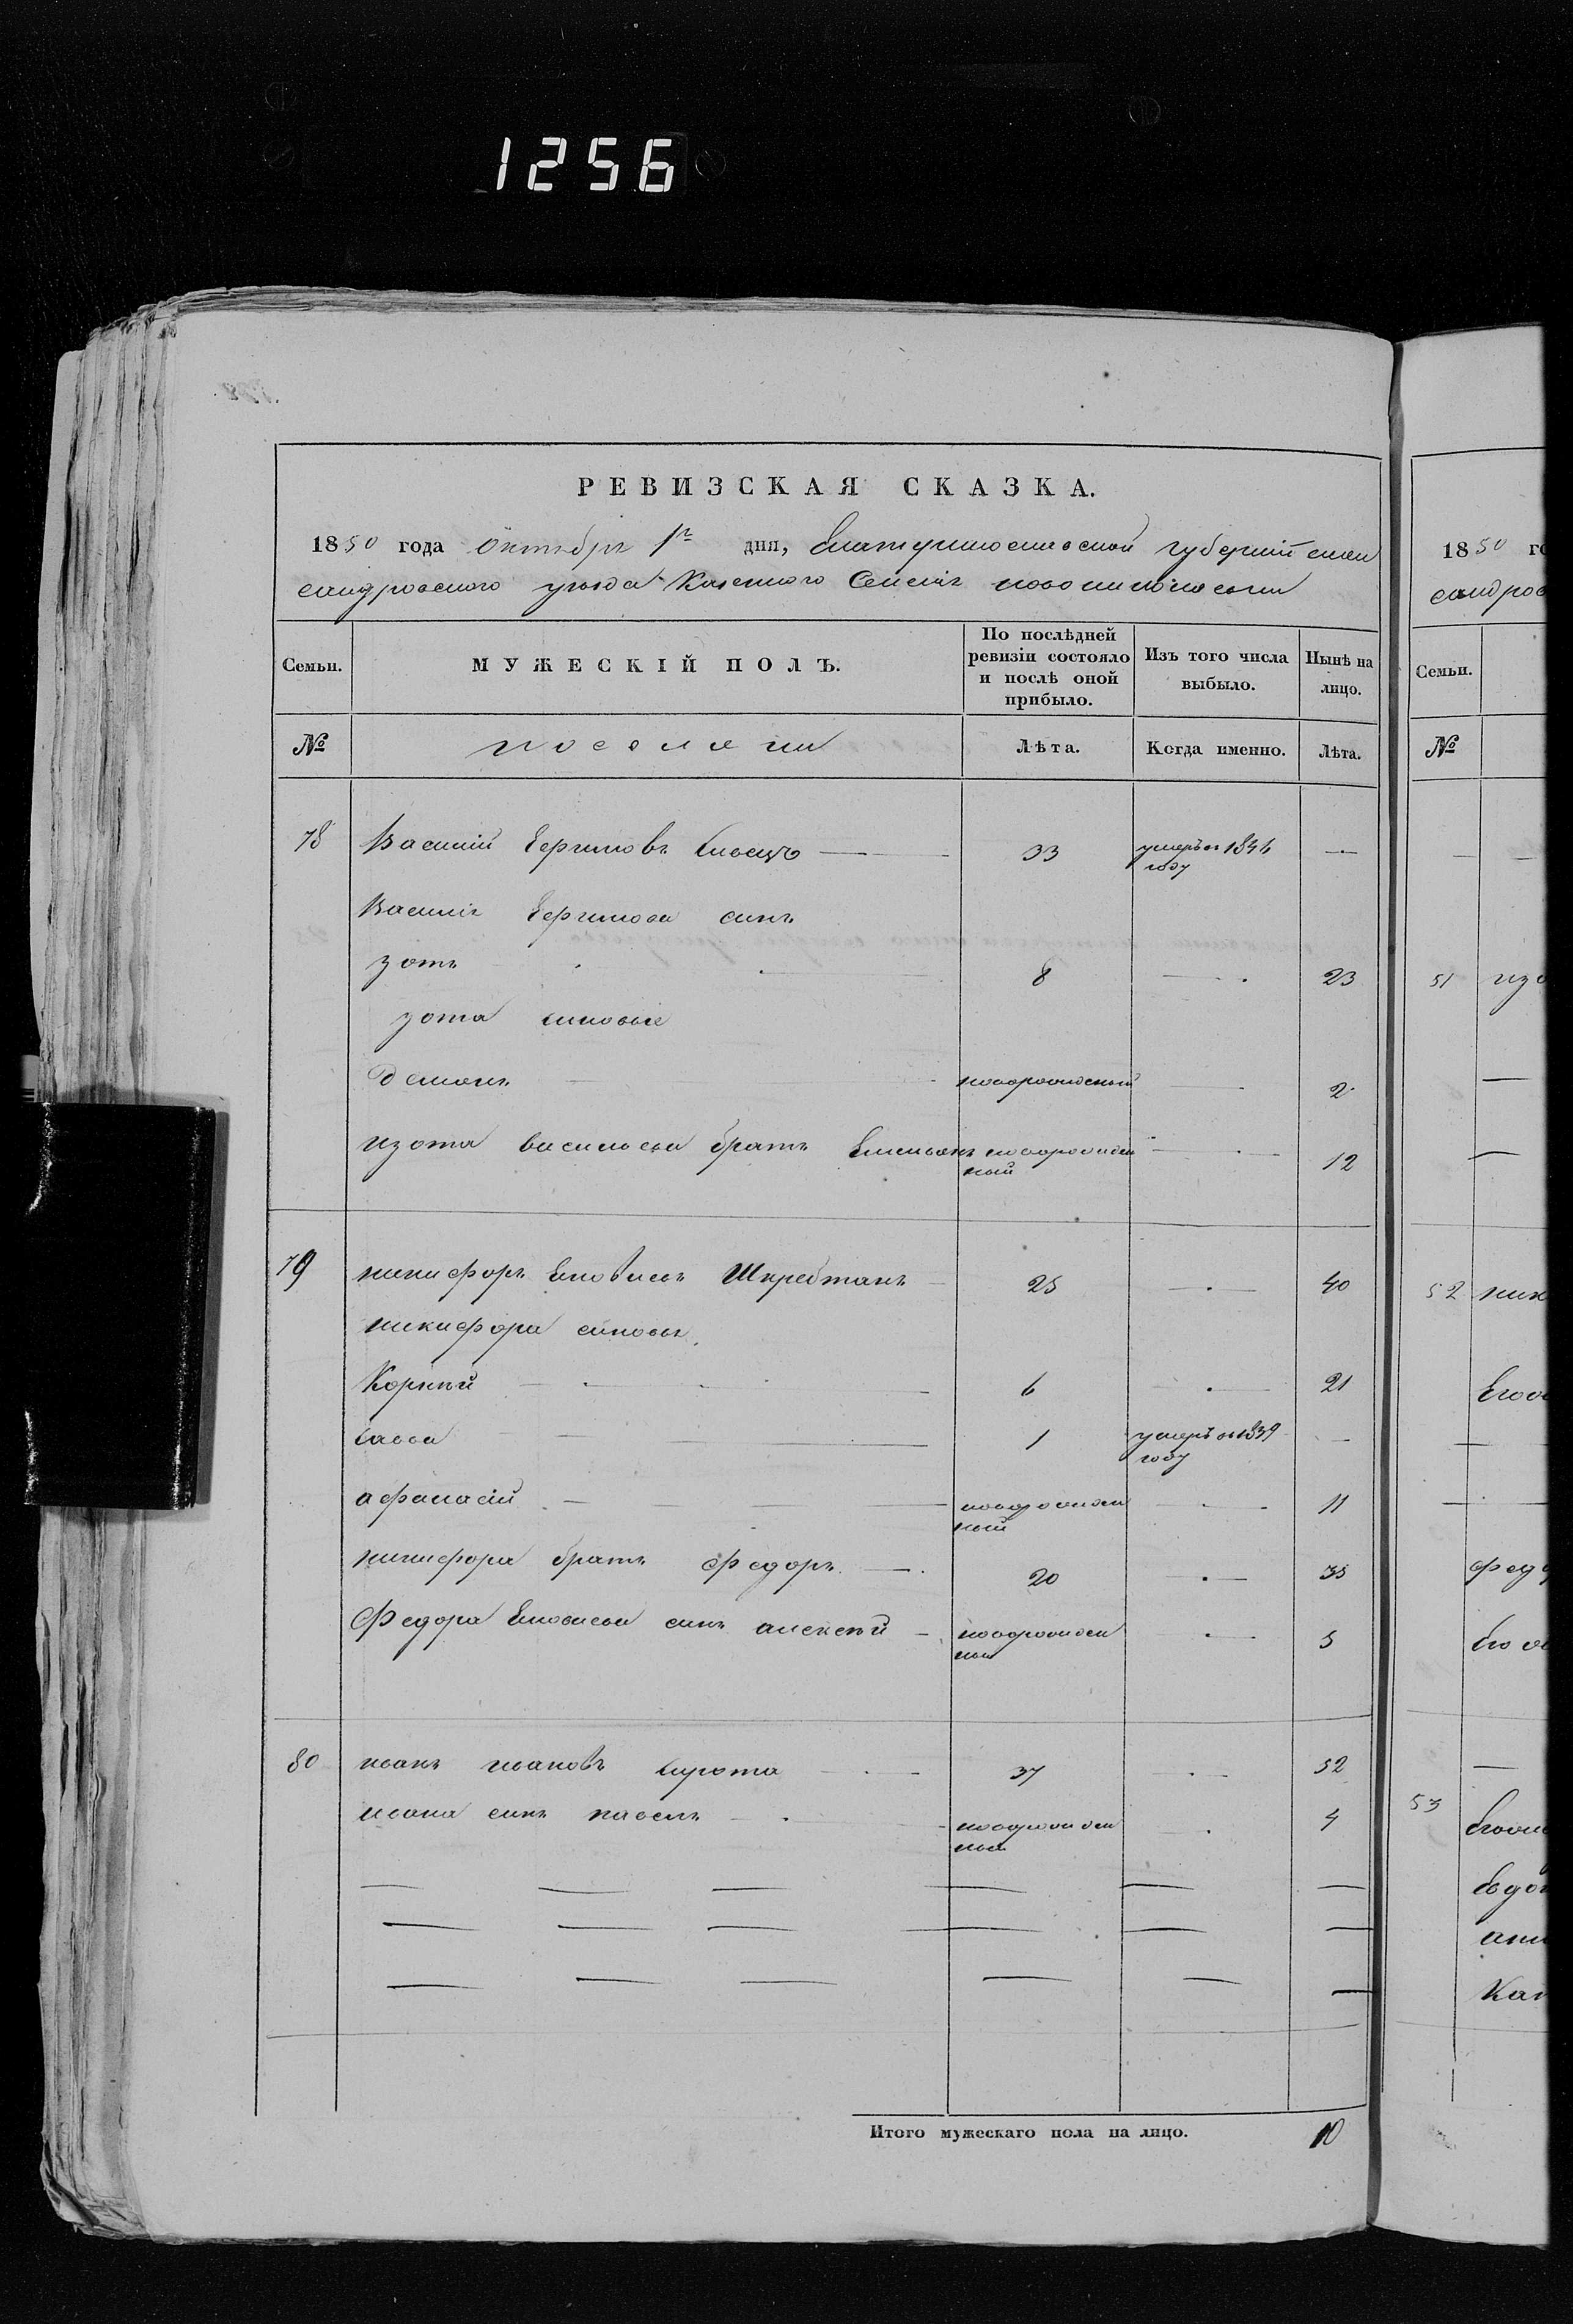 1256
РЕВИЗСКАЯ СКАЗКА.
1850 года октября 1го дня, Екатеринославской губерніи алек
сандровского уезда Казенного Селенія новониколаевки
Семьи.
МУЖЕСКІЙ ПОЛЪ.
По послѣдней ревизіи состояло и послѣ оной прибыло.
Изъ того числа выбыло.
Нынѣ на лицо.
№
поселяни
Лѣта.
Когда именно.
Лѣта.
78 Василій Ефимовъ — 33 умеръ в 1846 году —
Василія Ефимова синъ
зотъ — 8 — 23
зота синовье
Демянъ — новорожденый — 2
изота васильева братъ Емельянъ новорожден ный — 12
79 никифоръ Шкребтакъ — 25 — 40
никифора синовья
Корней — 6 — 21
Савва — 1 умеръ в 1839 году —
афанасій — новорожден ный — 11
никифора братъ Федоръ — 20 — 35
Федора синъ алексей — новорожден ный — 5
80 иванъ ивановъ Сирота — 37 — 52
ивана синъ павелъ — новорожден ный — 4
— — — — — —
— — — — — —
— — — — — —
Итого мужескаго пола на лицо. 10
1850 го
сандров
Семьи.
№
51 изо
52 ник
федо
53
евдо
анн
Кат